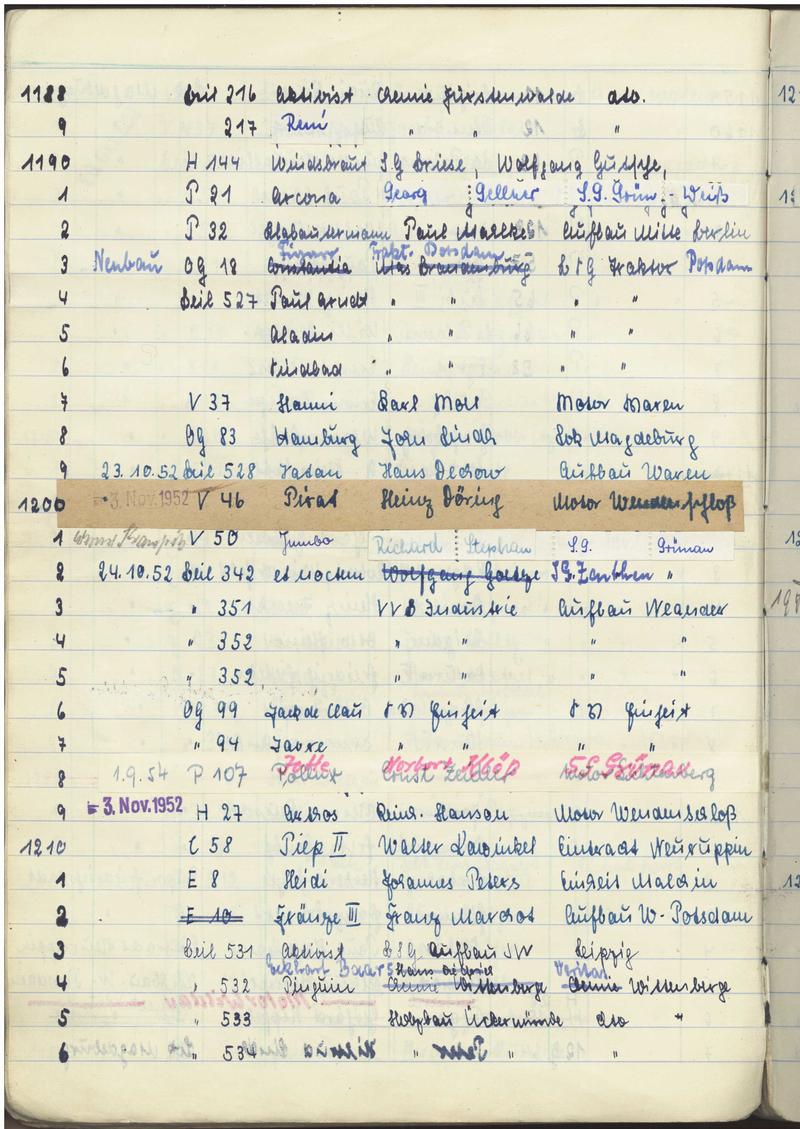 1188 Beil 216 Aktivist Chemie Fürstenwalde dto.
9 217 René " " "
1190 H 144 Windsbraut S G Briese, Wolfgang
1 P 21 Arcona Georg Gellner S.G. Grün-Weiß
2 P 32 Klabautermann Paul Aufbau Mitte Berlin
Figaro Potsdam
3 Neubau OG 18 Constantia Brandenburg BSG Traktor Potsdam
4 Beil 527 Paul Arndt " " " "
5 Aladin " " " "
6 Sindbad " " " "
7 V 37 Hanni Karl Moll Motor Waren
8 OG 83 Hamburg Lok Magdeburg
9 23.10.52 Beil 528 Fasan Hans Dechow Aufbau Waren
1200 3. Nov. 1952 V 46 Pirat Heinz Döring Motor Wendenschloß
1 V 50 Jumbo Richard Stephan S.G. Grünau
2 24.10.52 Beil 342 et nocten Wolfgang Goetze SG. Zeuthen "
3 " 351 VVB Industrie Aufbau Neander
4 " 352 " " " "
5 " 352 " " " "
6 OG 99 SV Einheit SV Einheit
7 " 94 " " " "
Norbert S.G. Grünau
8 1.9.54 P 107 Pollux Ernst Motor
9 3. Nov. 1952 H 27 Hanson Motor Wendenschloß
1210 C 58 Piep II Walter Eintracht Neuruppin
1 E 8 Heidi Johannes Peters Einheit Malchin
2 E 10 Fränze III Franz Aufbau W-Potsdam
3 Beil 531 Aktivist BSG Aufbau SW Leipzig
Eckhart Baars Hans
4 " 532 Pinguin Chemie Wittenberge Chemie Wittenberge
5 " 533 Holzbau Ückermünde dto "
6 " 534 " Peter " "